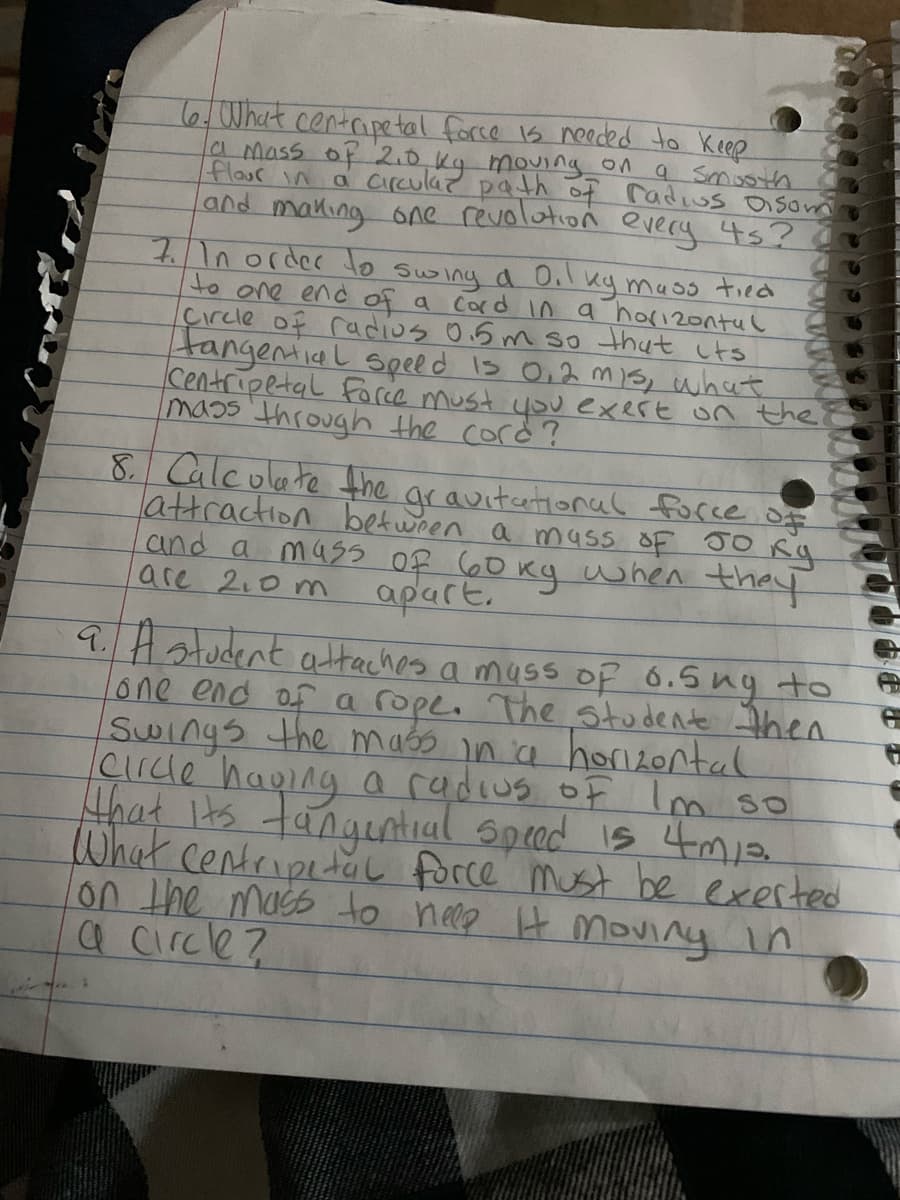 6. What centripetal force is needed to keep
a mass of 2.0 kg moving on a smooth
floor in a circular path of radius 0.50m
and making one revolution every 4s?
7. In order to swing a 0.1 kg mass tied
to one end of a cord in a horizontal
circle of radius 0.5 m so that its
tangential speed is 0.2 m/s, what
centripetal force must you exert on the
mass through the cord?
8. Calculate the gravitational force of
attraction between a mass of 50 kg
and a mass of 60 kg when they
are 2.0 m apart.
9. A student attaches a mass of 0.5 kg to
one end of a rope. The student then
swings the mass in a horizontal
circle having a radius of 1m so
that its tangential speed is 4m/s.
What centripetal force must be exerted
on the mass to keep it moving in
a circle?